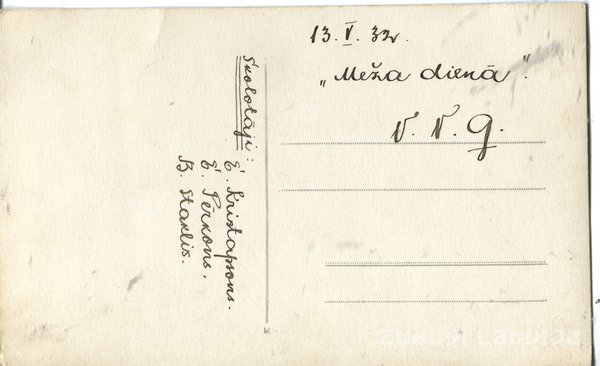 13. V. 32.
„Meža dienā".
V. V. g.
Skolotāji:
E. Kristapsons.
E. Pērkons.
B. Staklis.
zudusi Latvija